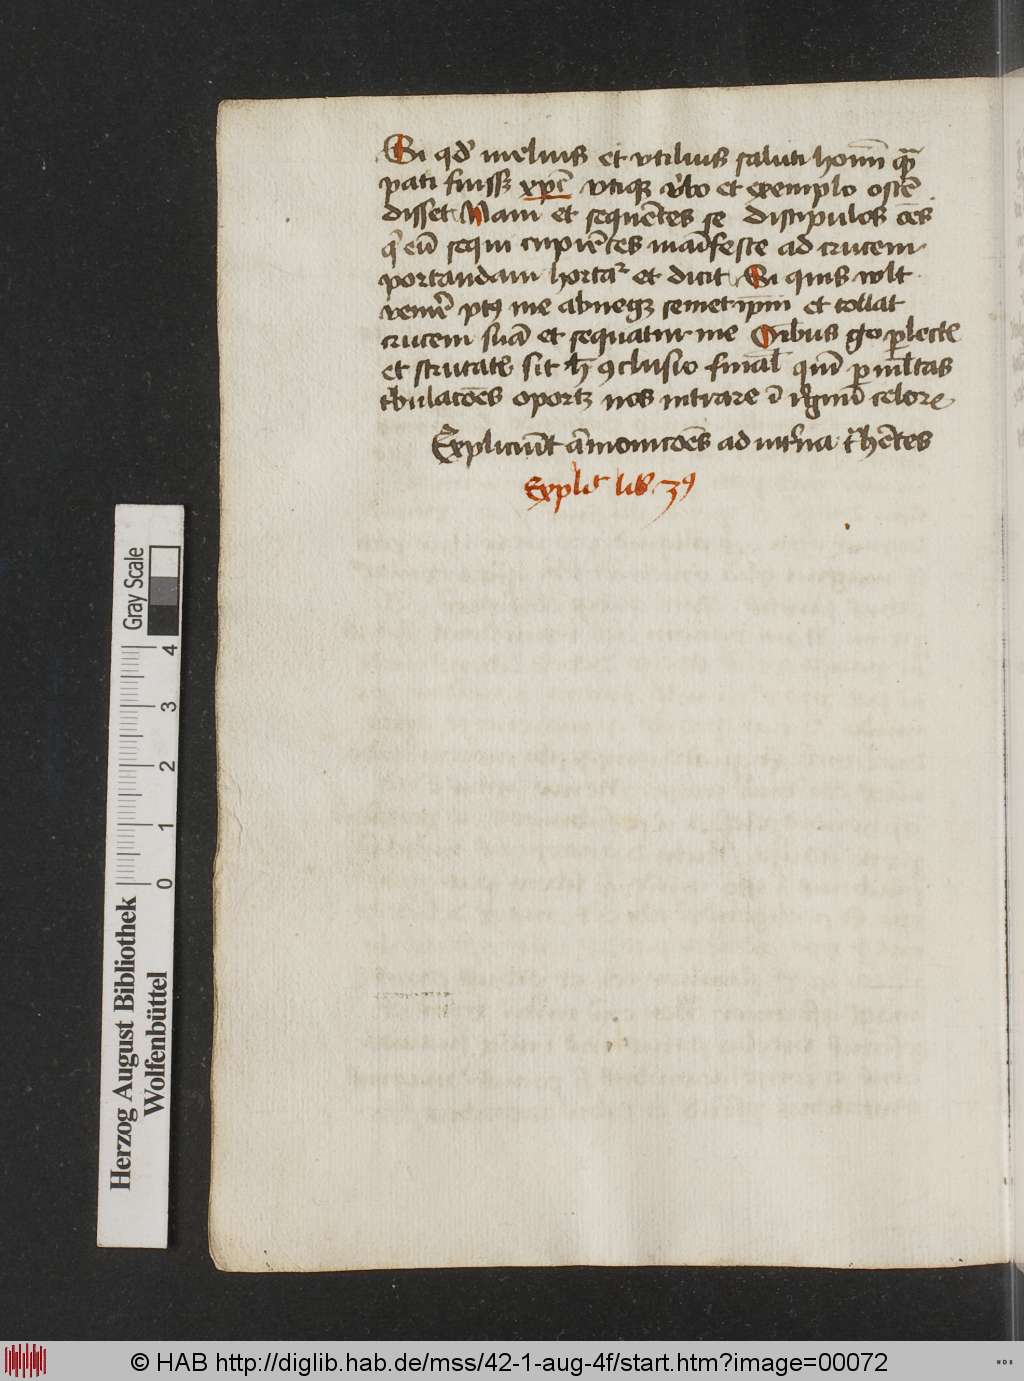 Si qd' melius et vtilius saluti hom̄ qͣ
pati fuissꝫ xp̄c vtiqꝫ v'bo et exemplo ostē
disset Nam et sequētes se discipulos oēs
qͥ eū sequi cupiētes maīfeste ad crucem
portandam hortaͬ et dicit Si quis wlt
venīe ptꝰ me abnegꝫ semetip̄m et tollat
crucem suā et sequatur me Oībus gͦo plect'
et scrutat' sit h̄ ꝯclusio final' qm̄ p ml'tas
t'bulacōes oportꝫ nos intrare ī r'gnū celoꝝ
Expliciūt āmonicōes ad int'na tͣhētes
Expliͭ lib 3ꝰ
Gray Scale
0 1 2 3 4
Herzog August Bibliothek
Wolfenbüttel
© HAB http://diglib.hab.de/mss/42-1-aug-4f/start.htm?image=00072